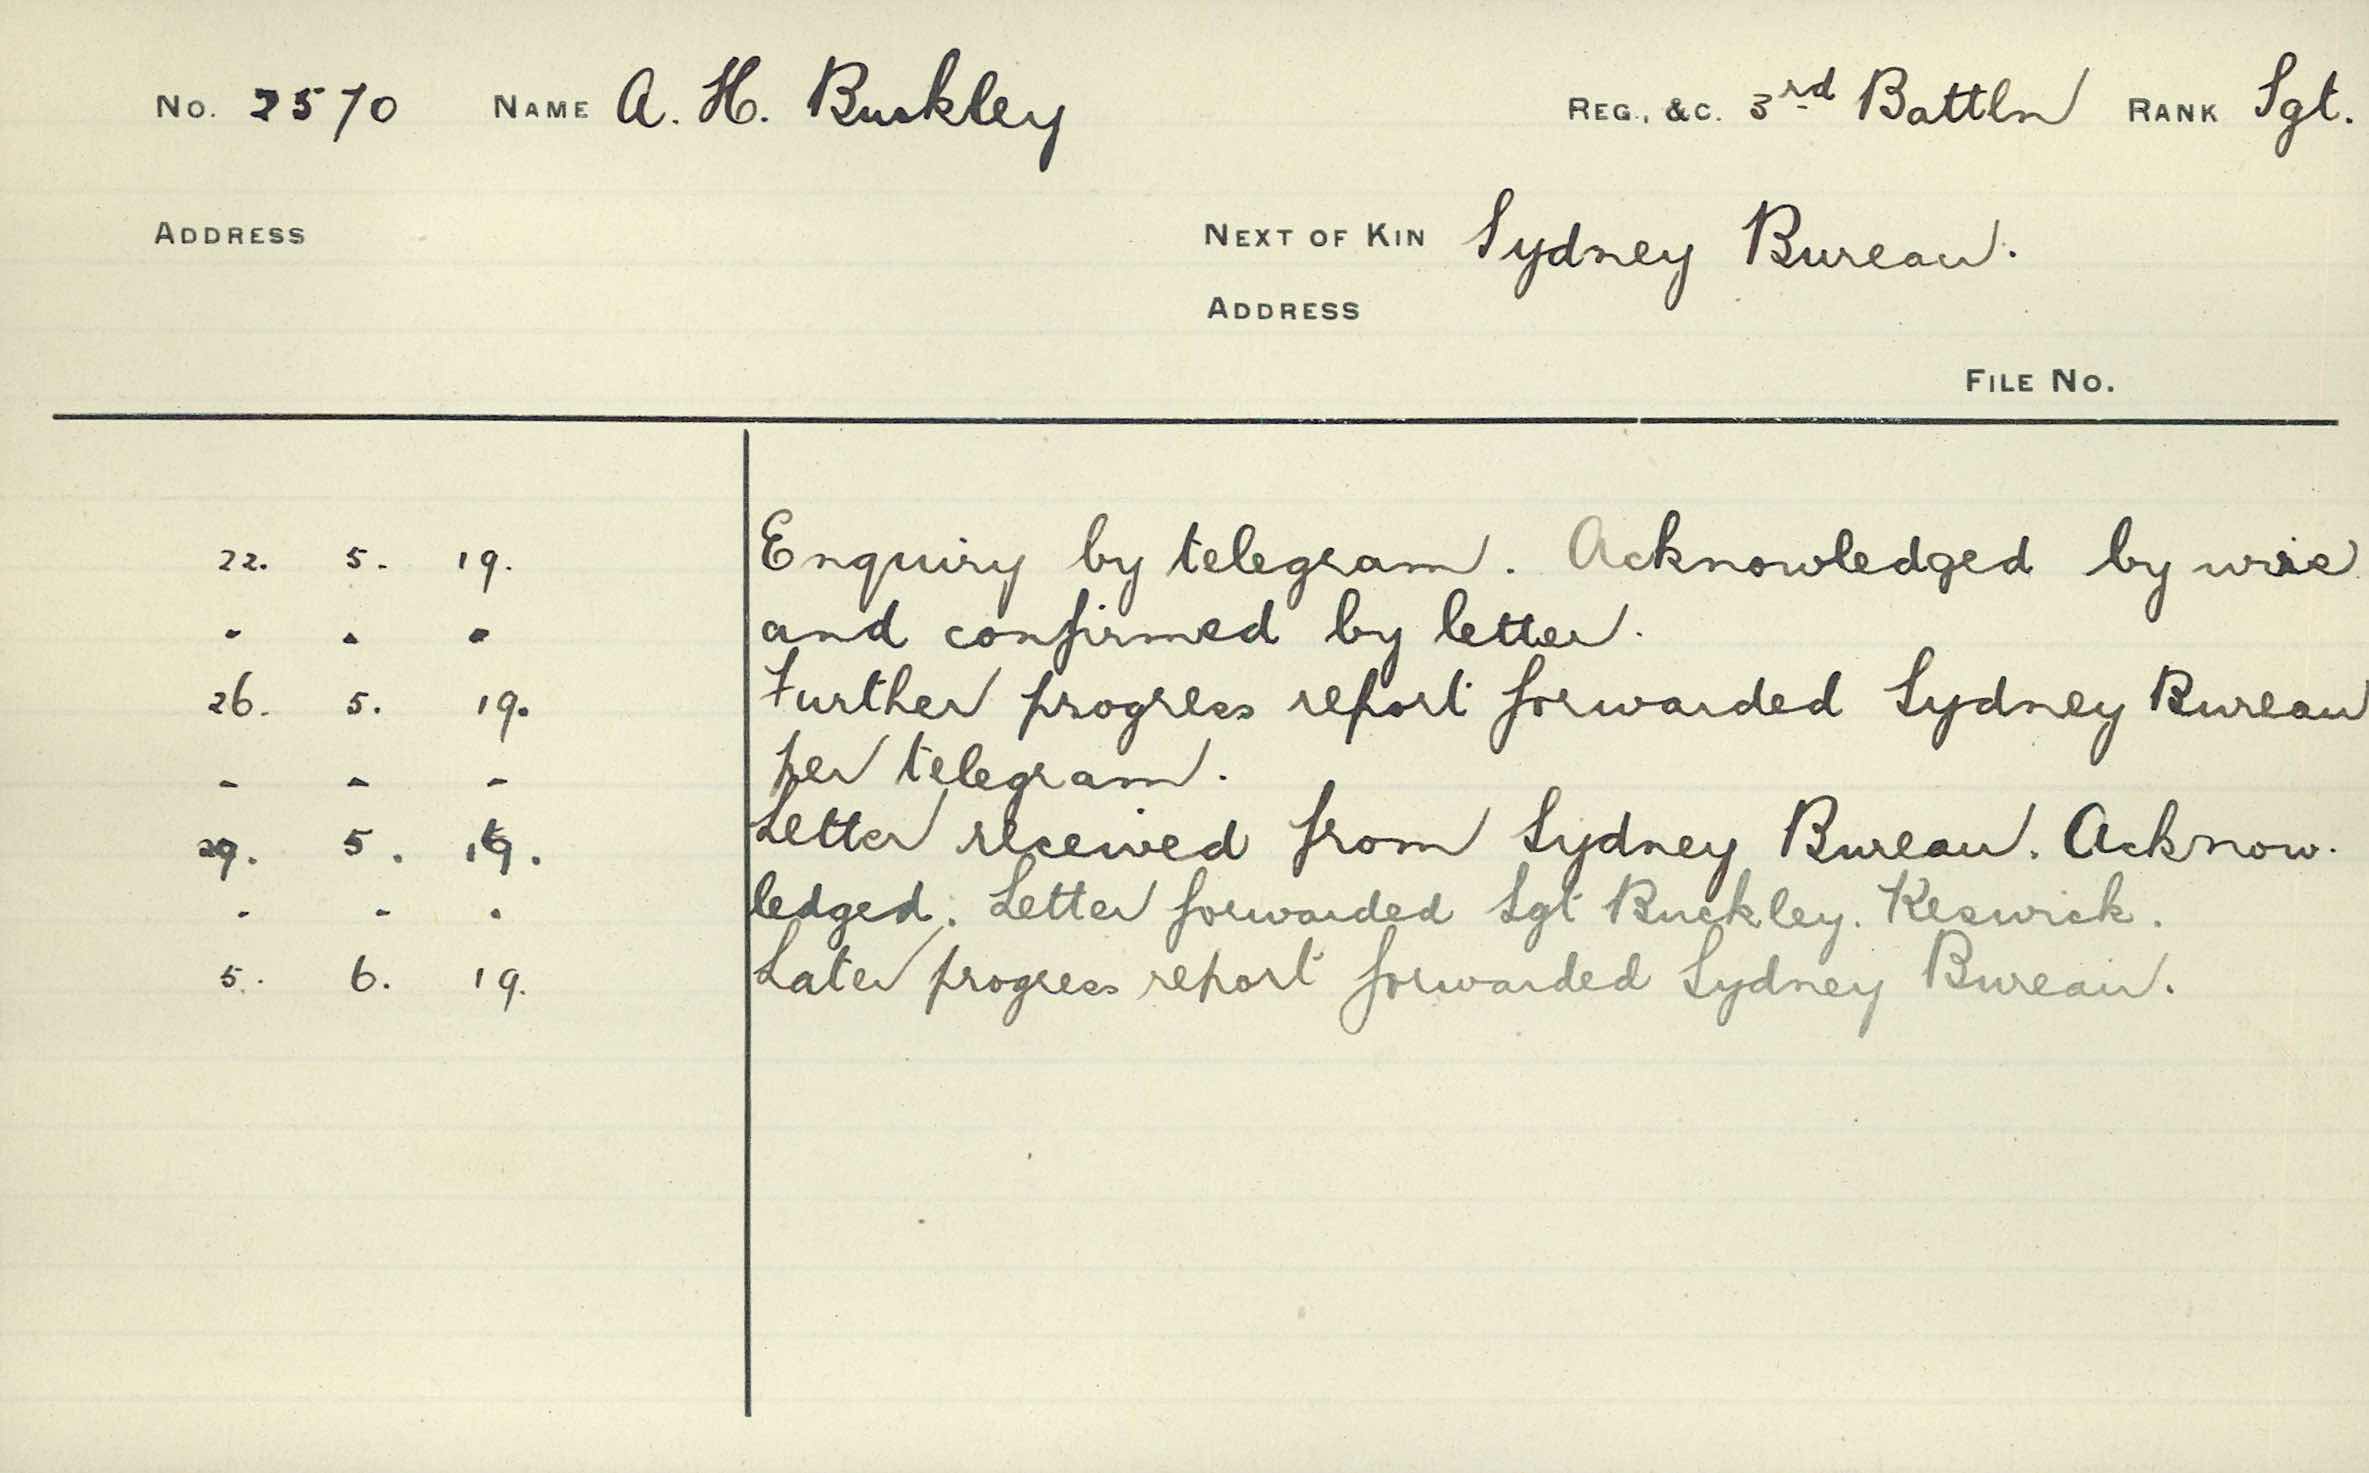 No. 2570 NAME A. H. Buckley REG., &C. 3rd Battln RANK Sgt.
ADDRESS NEXT OF KIN Sydney Bureau.
ADDRESS
FILE No.
22. 5. 19. Enquiry by telegram. Acknowledged by wire
" " " and confirmed by letter.
26. 5. 19. Further progress report forwarded Sydney Bureau
- - - per telegram.
29. 5. 19. Letter received from Sydney Bureau. Acknow-
- - - ledged. Letter forwarded Sgt Buckley. Keswick.
5. 6. 19. Later progress report forwarded Sydney Bureau.